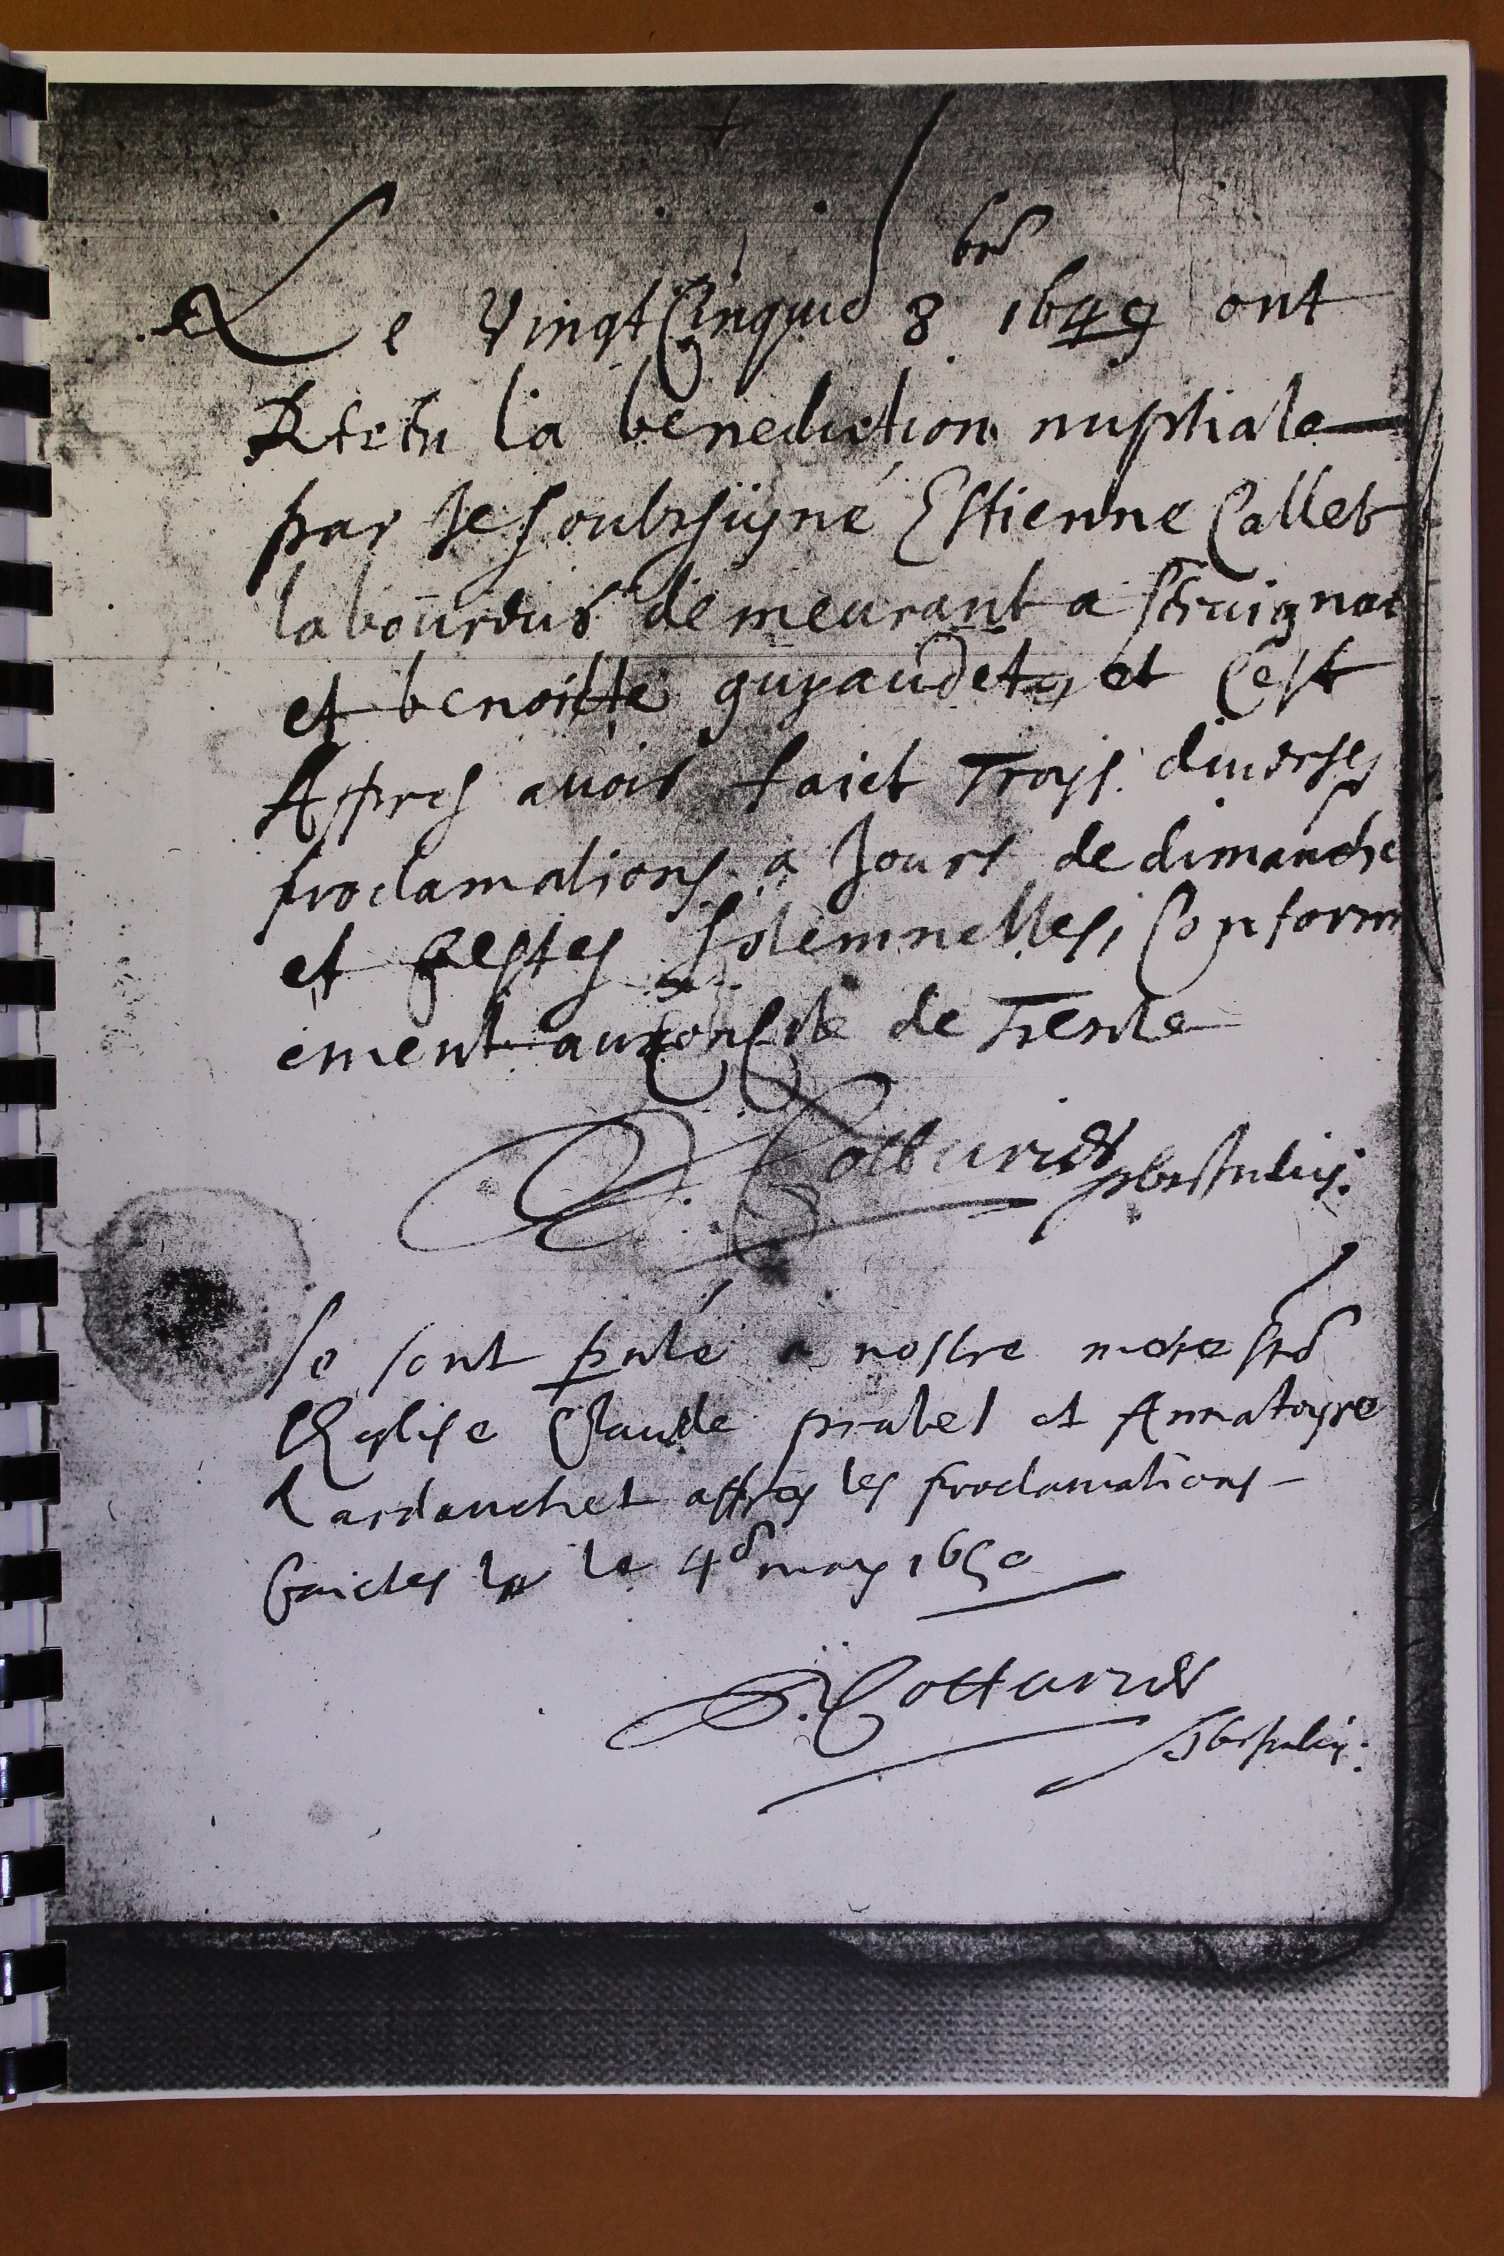 Le vingt cinquie 8bre 1649 ont
Receu la benediction nuptiale
par Je soubsigné Estienne Callet
laboureur demeurant a Struignat
et benoitte guyaudet et Cest
Appres avoir faict Troys diverses
proclamations a Jours de dimanche
et festes solemnelles, Conform
ement au Concile de Trente
Cottarier pbr
Se sont pnté a nostre mere ste
Eglise Claude prabel et Annatoyre
Lardanchet appres les proclamations
faictes le 4e may 1650
Cottarier